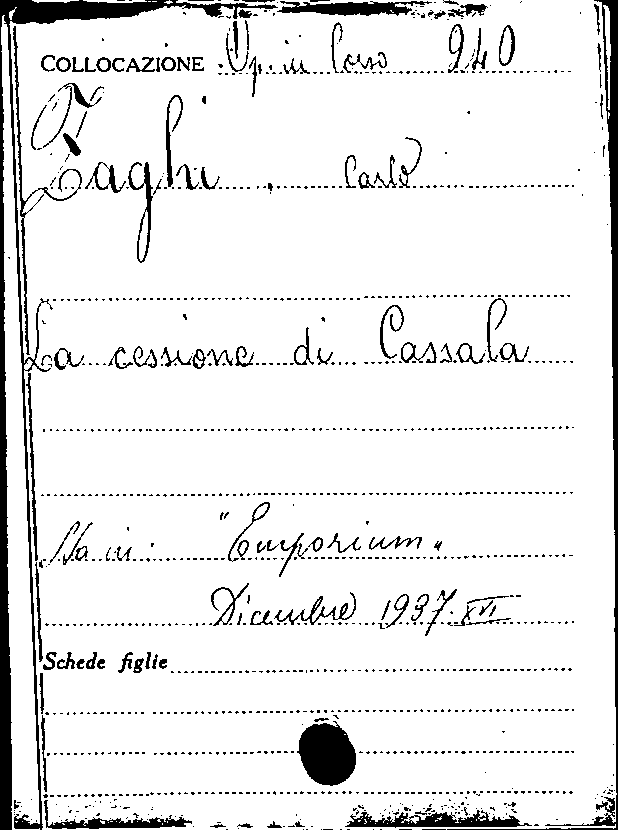 COLLOCAZIONE Op. in Corso 240
Z
Zaghi. Carlo
La cessione di Cassala
Sta in: "Emporium"
Dicembre 1937. XVI
Schede figlie